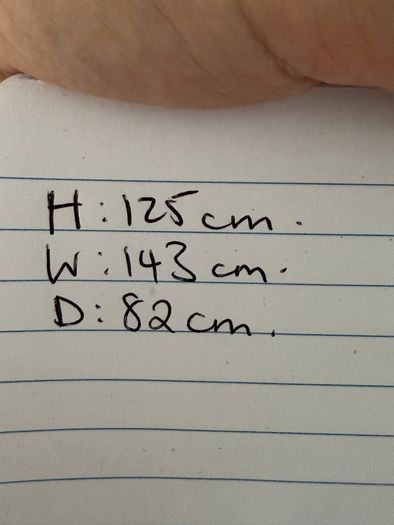 H: 125 cm.
W: 143 cm.
D: 82 cm.